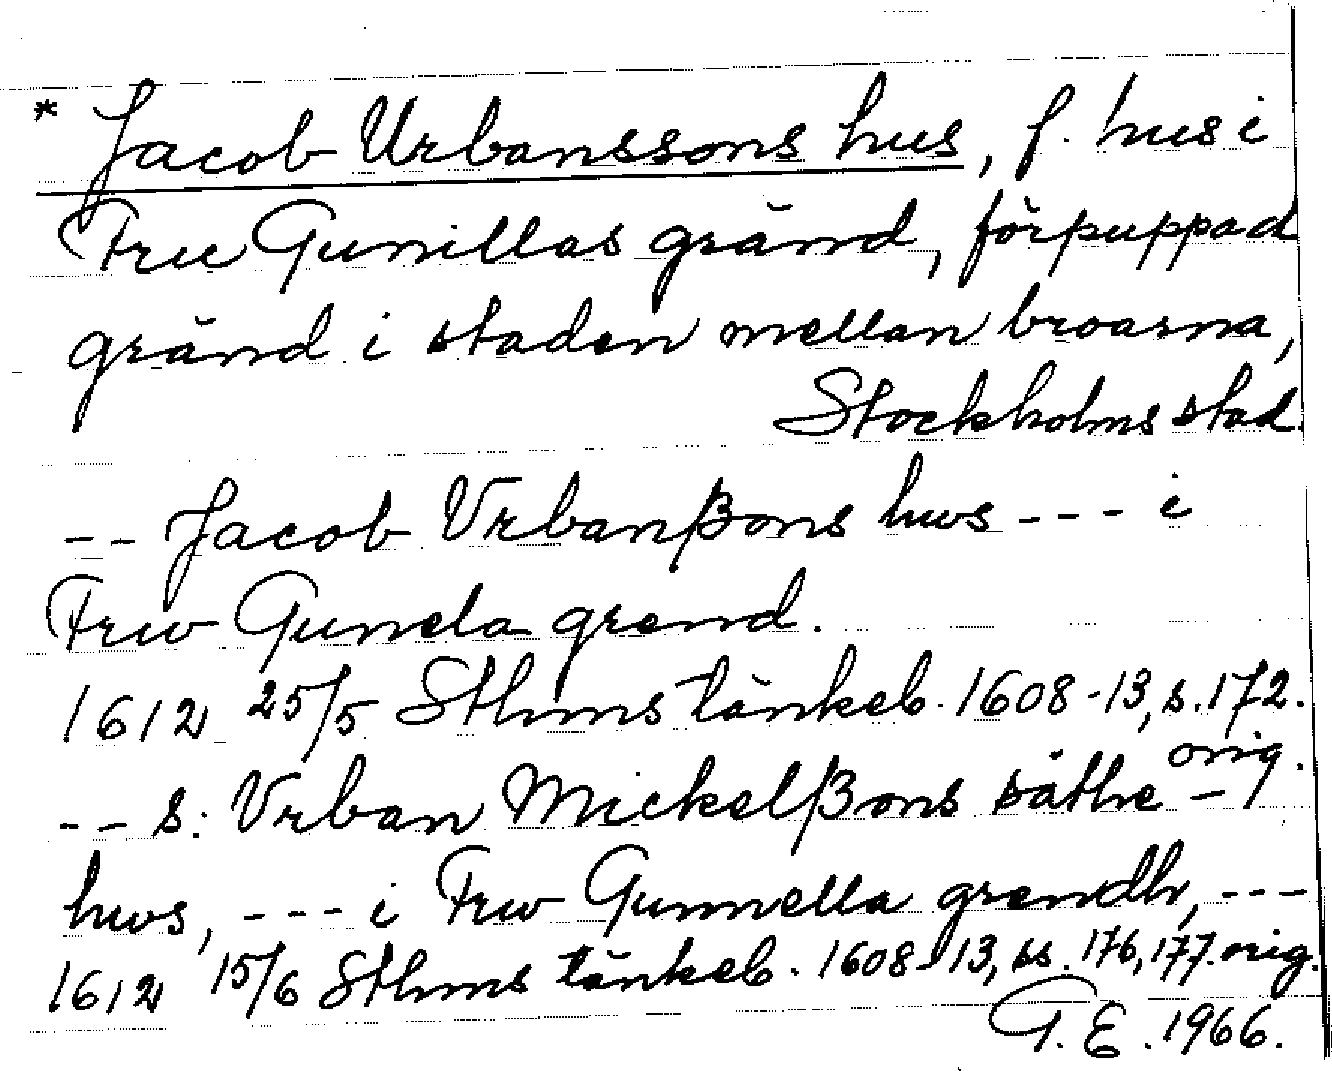 * Jacob Urbanssons hus, f. hus i
Fru Gunillas gränd, förpuppad
gränd i staden mellan broarna,
Stockholms stad.
-- Jacob Vrbanßons hws --- i
Frw Gunela grend.
1612 25/5 Sthms tänkeb. 1608-13, s. 172.
orig.
-- S: Vrban Mickelßons säthe -
hws, --- i Frw Gunnella grendh, ---
1612 15/6 Sthms tänkeb. 1608-13, ss. 176, 177. orig.
G. E. 1966.